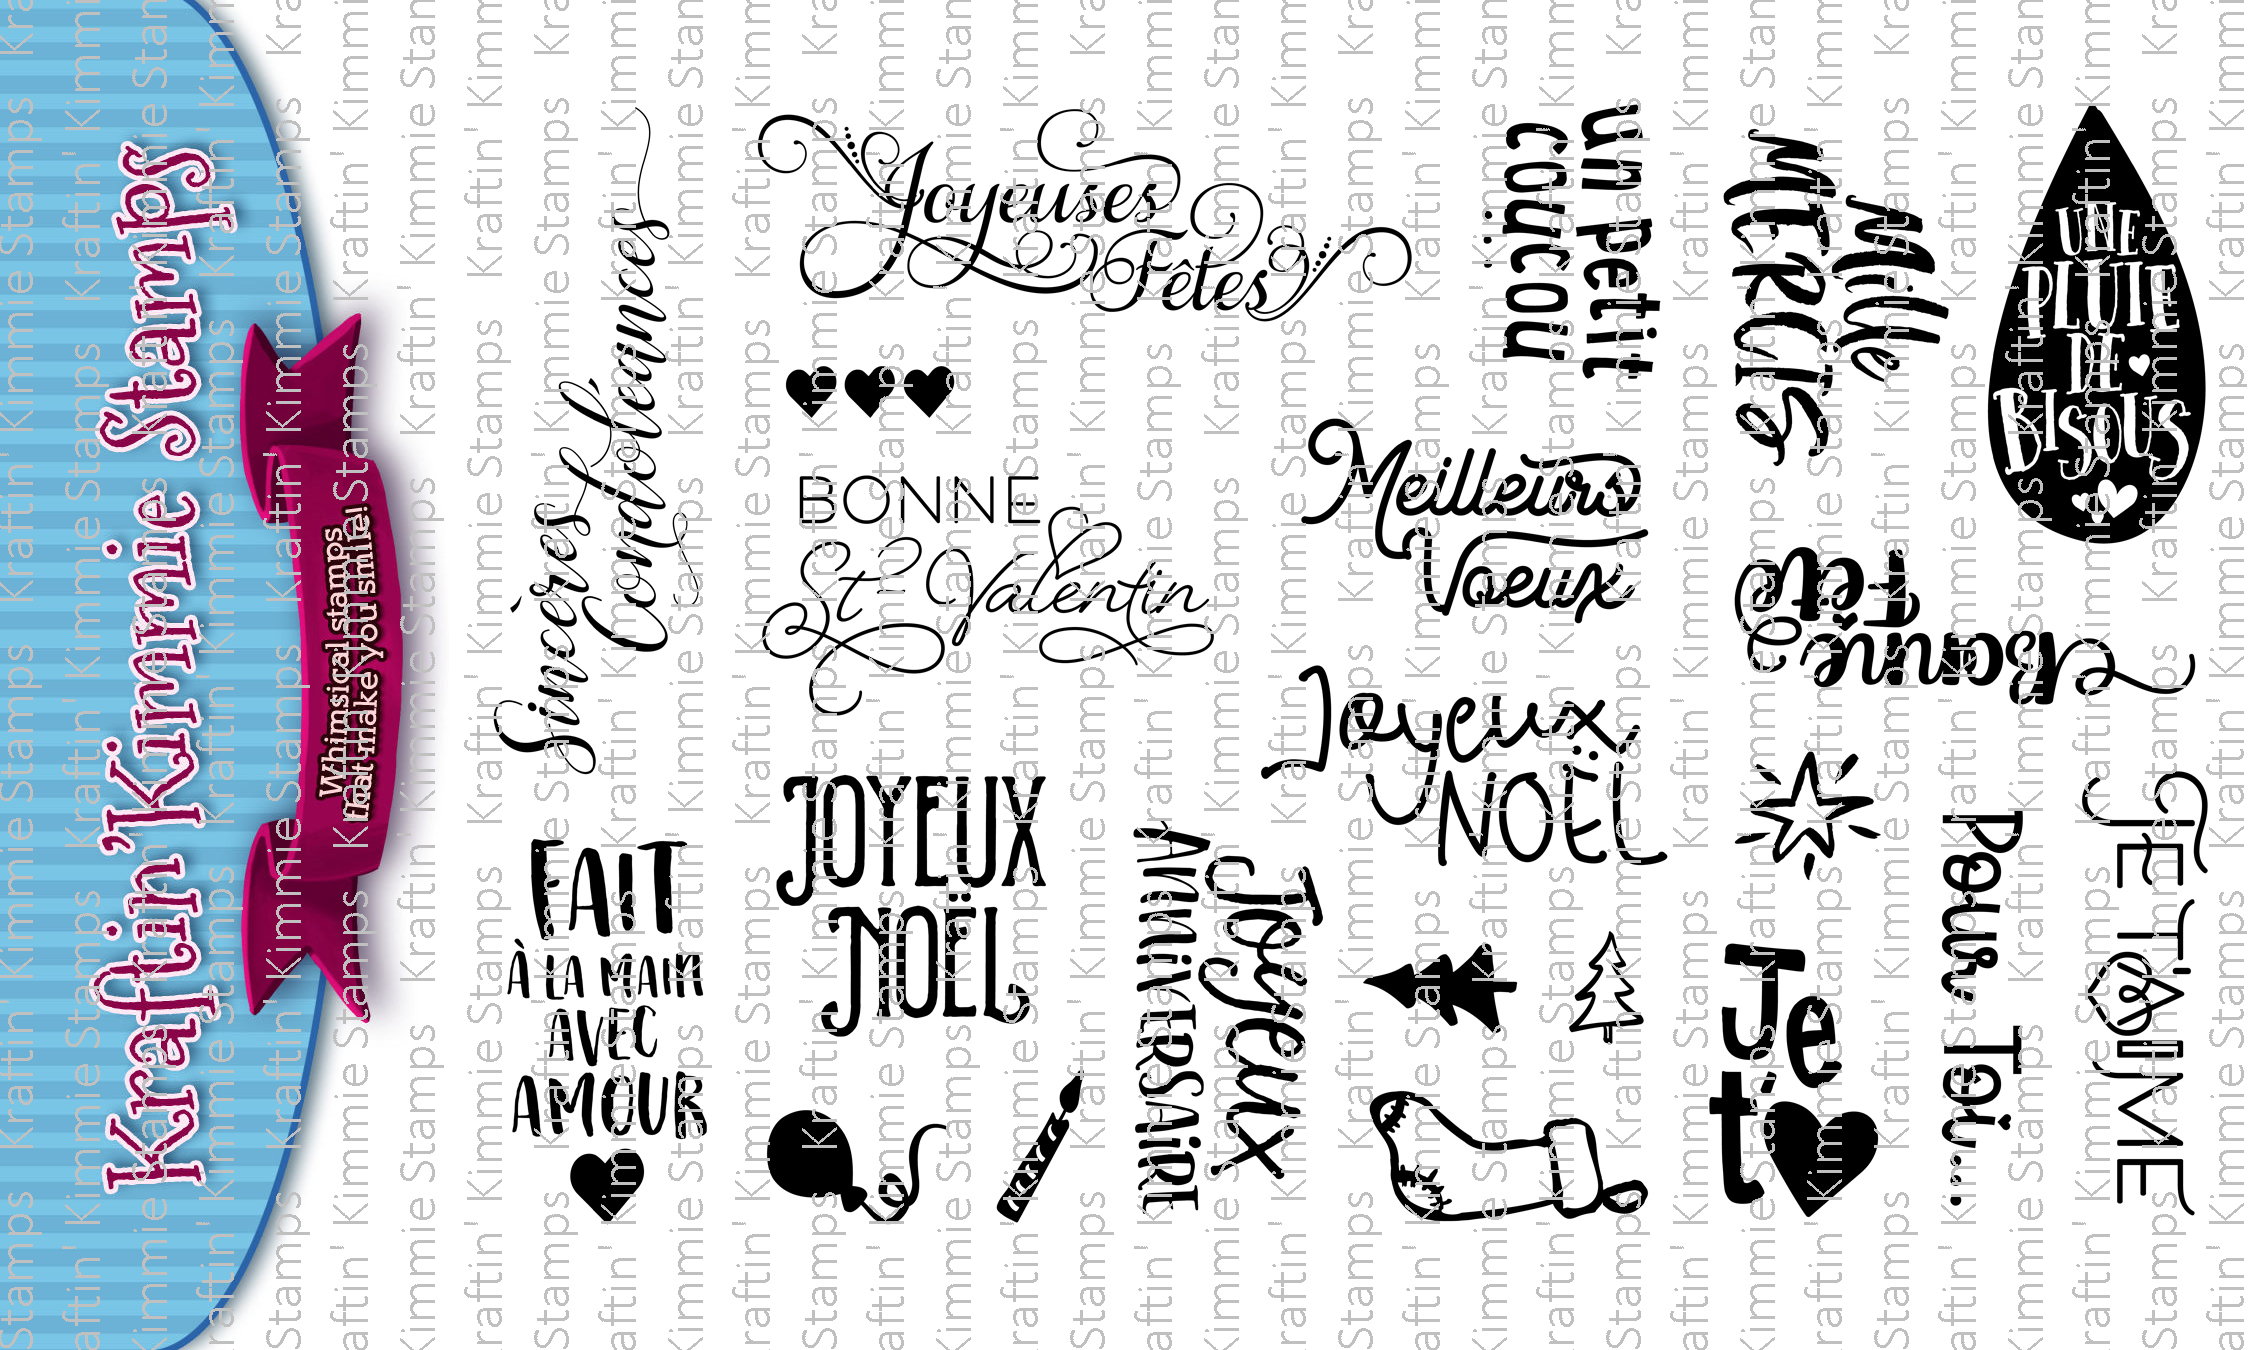 Kraftin' Kimmie Stamps
Whimsical stamps
that make you smile!
Sincères
Condoléances
Joyeuses
Fêtes
un petit
coucou
Mille
MERCIS
UNE
PLUIE
DE
BISOUS
BONNE
St-Valentin
Meilleurs
Voeux
Bonne
Fête
Joyeux
NOËL
FAIT
À LA MAIN
AVEC
AMOUR
JOYEUX
NOËL
Joyeux
ANNIVERSAIRE
Je
t'
Pour Toi....
JE T'AIME
Kraftin' Kimmie Stamps